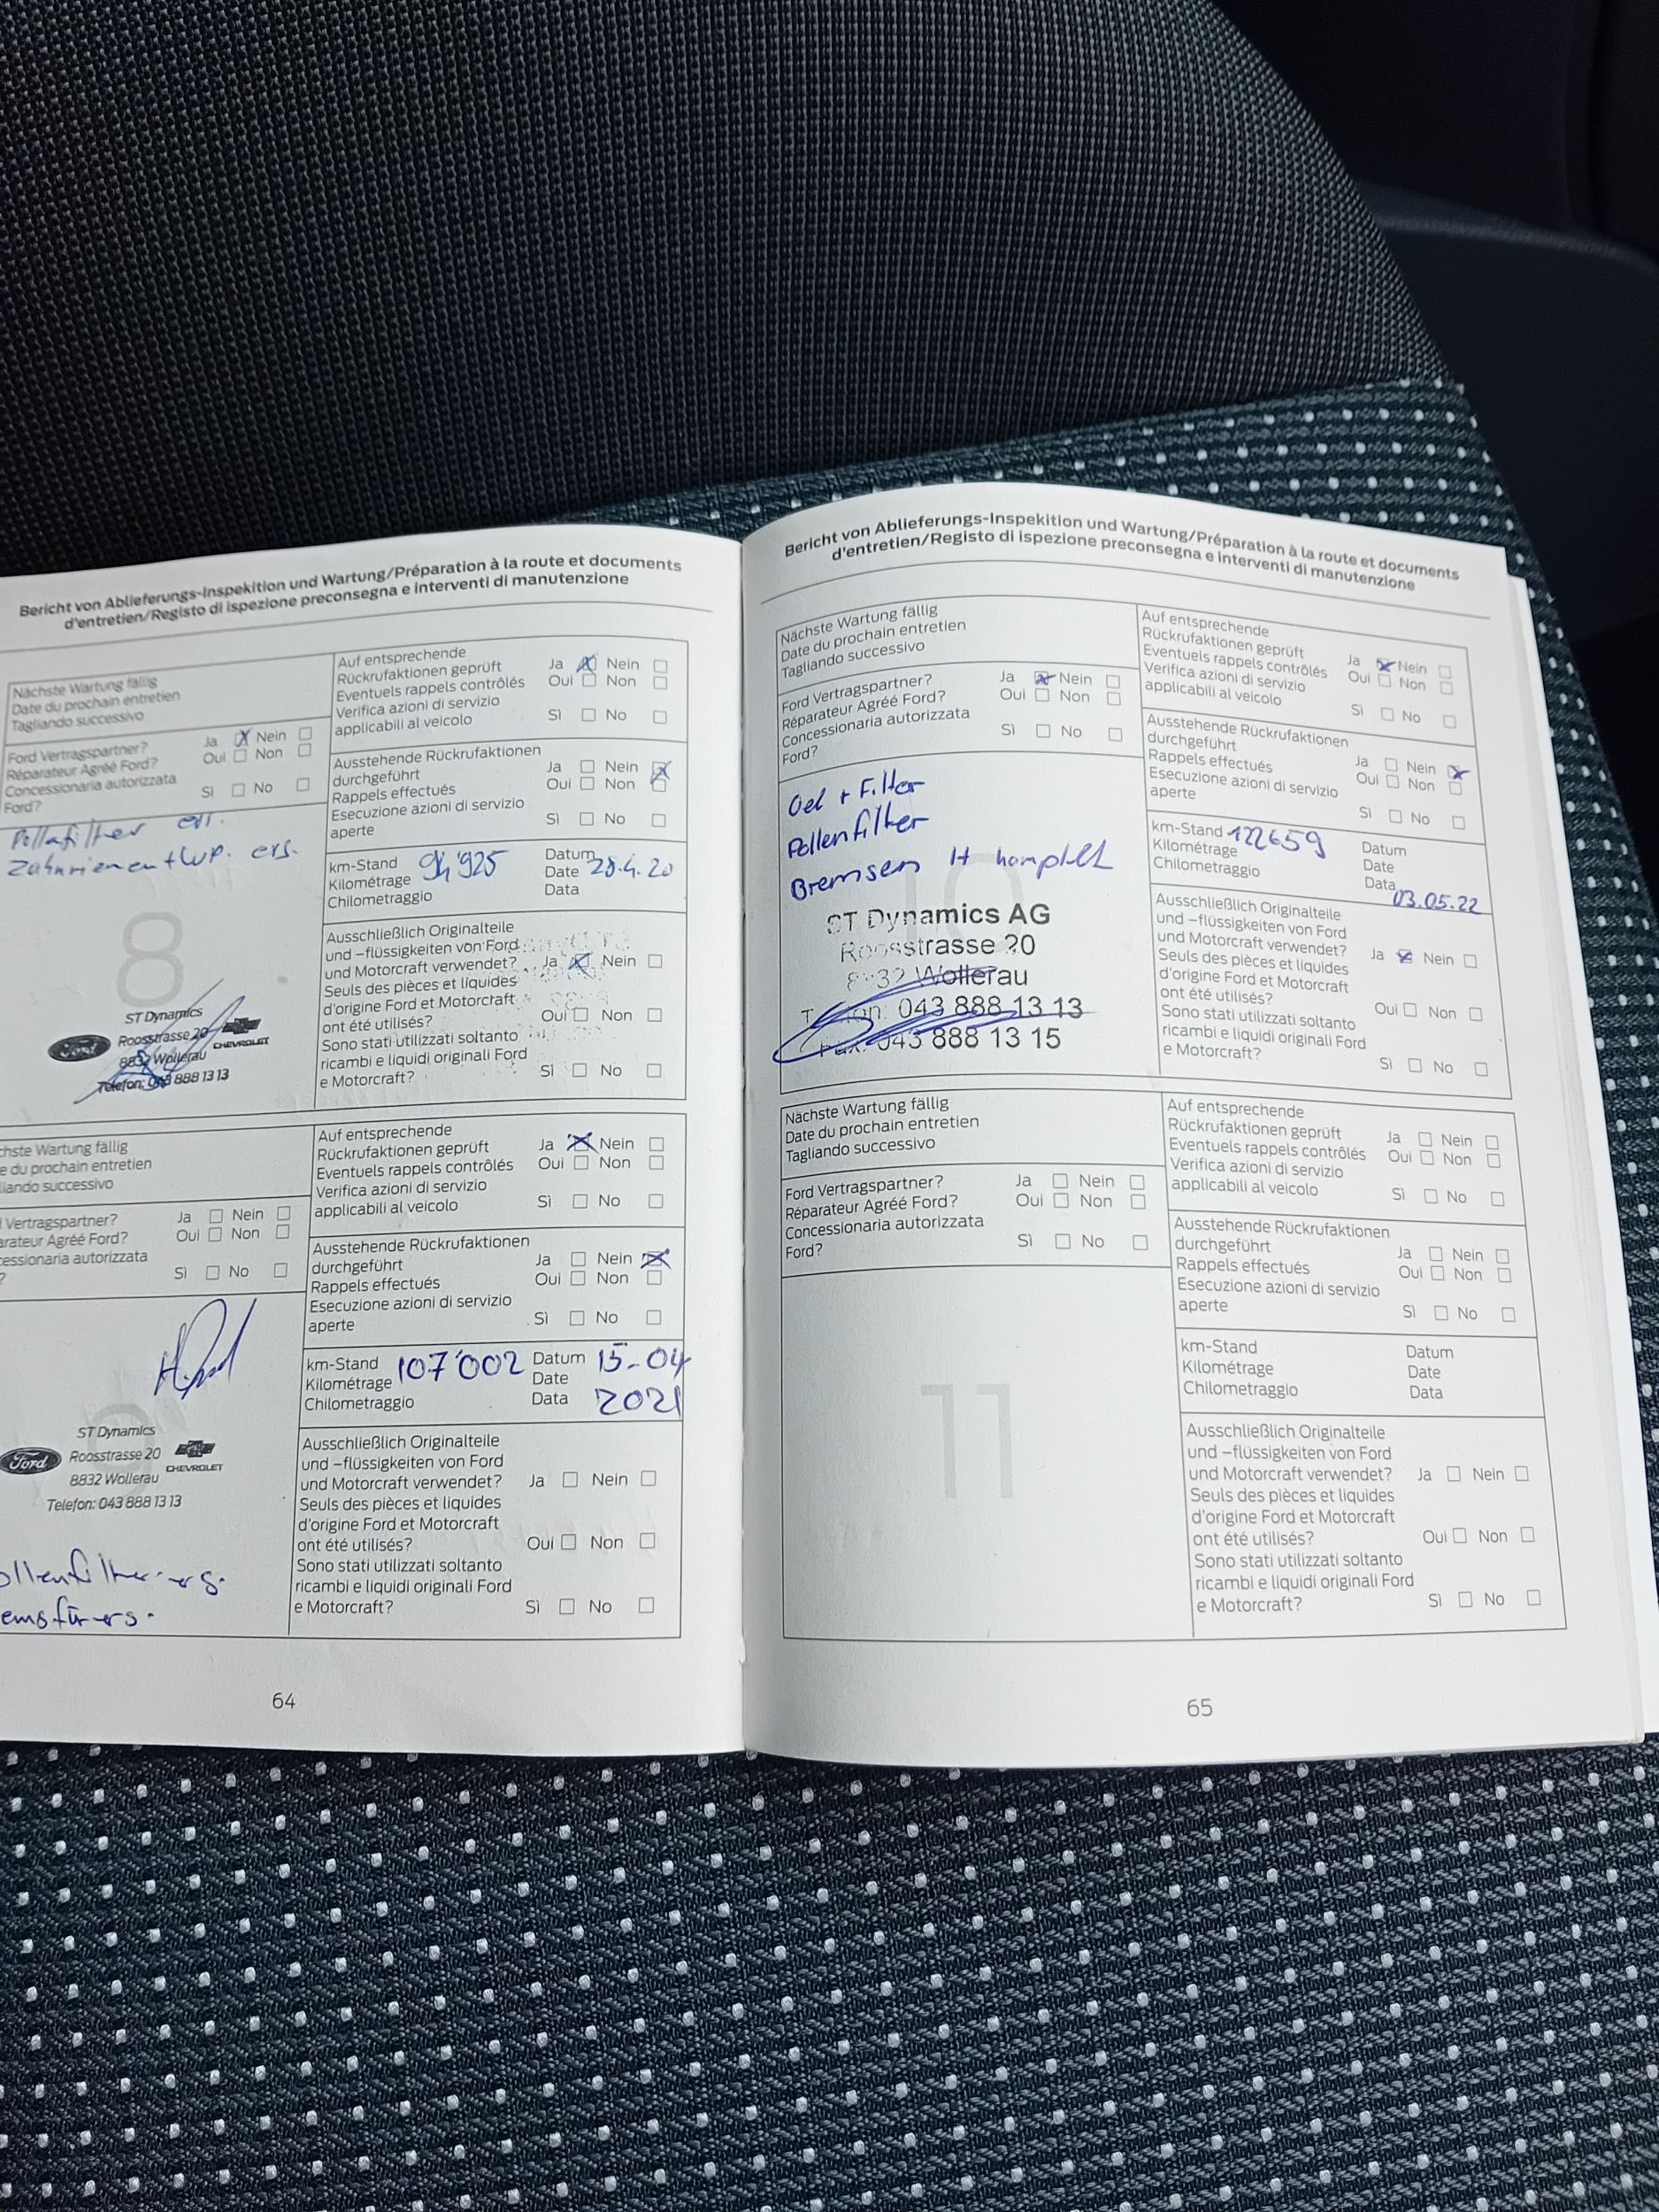 Bericht von Ablieferungs-Inspekition und Wartung/Préparation à la route et documents
d'entretien/Registo di ispezione preconsegna e interventi di manutenzione
Nächste Wartung fällig
Date du prochain entretien
Tagliando successivo
Ford Vertragspartner?
Réparateur Agréé Ford?
Concessionaria autorizzata
Ford?
Ja Nein
Oui Non
Sì No
Zahnriemen + Wp. ers.
8
ST Dynamics
Ford Roosstrasse 20 CHEVROLET
8832 Wollerau
Telefon: 043 888 13 13
Auf entsprechende
Rückrufaktionen geprüft
Eventuels rappels contrôlés
Verifica azioni di servizio
applicabili al veicolo
Ja Nein
Oui Non
Sì No
Ausstehende Rückrufaktionen
durchgeführt
Rappels effectués
Esecuzione azioni di servizio
aperte
Ja Nein
Oui Non
Sì No
km-Stand
Kilométrage 94'925
Chilometraggio
Datum
Date 28.4.20
Data
Ausschließlich Originalteile
und –flüssigkeiten von Ford
und Motorcraft verwendet? Ja Nein
Seuls des pièces et liquides
d'origine Ford et Motorcraft
ont été utilisés? Oui Non
Sono stati utilizzati soltanto
ricambi e liquidi originali Ford
e Motorcraft? Sì No
chste Wartung fällig
e du prochain entretien
liando successivo
Vertragspartner?
arateur Agréé Ford?
cessionaria autorizzata
?
Ja Nein
Oui Non
Sì No
ST Dynamics
Ford Roosstrasse 20 CHEVROLET
8832 Wollerau
Telefon: 043 888 13 13
ollenfilter ers.
Auf entsprechende
Rückrufaktionen geprüft
Eventuels rappels contrôlés
Verifica azioni di servizio
applicabili al veicolo
Ja Nein
Oui Non
Sì No
Ausstehende Rückrufaktionen
durchgeführt
Rappels effectués
Esecuzione azioni di servizio
aperte
Ja Nein
Oui Non
Sì No
km-Stand
Kilométrage 107'002
Chilometraggio
Datum 15-04
Date
Data 2021
Ausschließlich Originalteile
und –flüssigkeiten von Ford
und Motorcraft verwendet? Ja Nein
Seuls des pièces et liquides
d'origine Ford et Motorcraft
ont été utilisés? Oui Non
Sono stati utilizzati soltanto
ricambi e liquidi originali Ford
e Motorcraft? Sì No
64
Bericht von Ablieferungs-Inspekition und Wartung/Préparation à la route et documents
d'entretien/Registo di ispezione preconsegna e interventi di manutenzione
Nächste Wartung fällig
Date du prochain entretien
Tagliando successivo
Ford Vertragspartner?
Réparateur Agréé Ford?
Concessionaria autorizzata
Ford?
Ja Nein
Oui Non
Sì No
Oel + Filter
Pollenfilter
Bremsen H komplett
10
ST Dynamics AG
Roosstrasse 20
8832 Wollerau
Telefon: 043 888 13 13
Fax: 043 888 13 15
Auf entsprechende
Rückrufaktionen geprüft
Eventuels rappels contrôlés
Verifica azioni di servizio
applicabili al veicolo
Ja Nein
Oui Non
Sì No
Ausstehende Rückrufaktionen
durchgeführt
Rappels effectués
Esecuzione azioni di servizio
aperte
Ja Nein
Oui Non
Sì No
km-Stand 122659
Kilométrage
Chilometraggio
Datum
Date
Data 03.05.22
Ausschließlich Originalteile
und –flüssigkeiten von Ford
und Motorcraft verwendet? Ja Nein
Seuls des pièces et liquides
d'origine Ford et Motorcraft
ont été utilisés? Oui Non
Sono stati utilizzati soltanto
ricambi e liquidi originali Ford
e Motorcraft? Sì No
Nächste Wartung fällig
Date du prochain entretien
Tagliando successivo
Ford Vertragspartner?
Réparateur Agréé Ford?
Concessionaria autorizzata
Ford?
Ja Nein
Oui Non
Sì No
11
Auf entsprechende
Rückrufaktionen geprüft
Eventuels rappels contrôlés
Verifica azioni di servizio
applicabili al veicolo
Ja Nein
Oui Non
Sì No
Ausstehende Rückrufaktionen
durchgeführt
Rappels effectués
Esecuzione azioni di servizio
aperte
Ja Nein
Oui Non
Sì No
km-Stand
Kilométrage
Chilometraggio
Datum
Date
Data
Ausschließlich Originalteile
und –flüssigkeiten von Ford
und Motorcraft verwendet? Ja Nein
Seuls des pièces et liquides
d'origine Ford et Motorcraft
ont été utilisés? Oui Non
Sono stati utilizzati soltanto
ricambi e liquidi originali Ford
e Motorcraft? Sì No
65